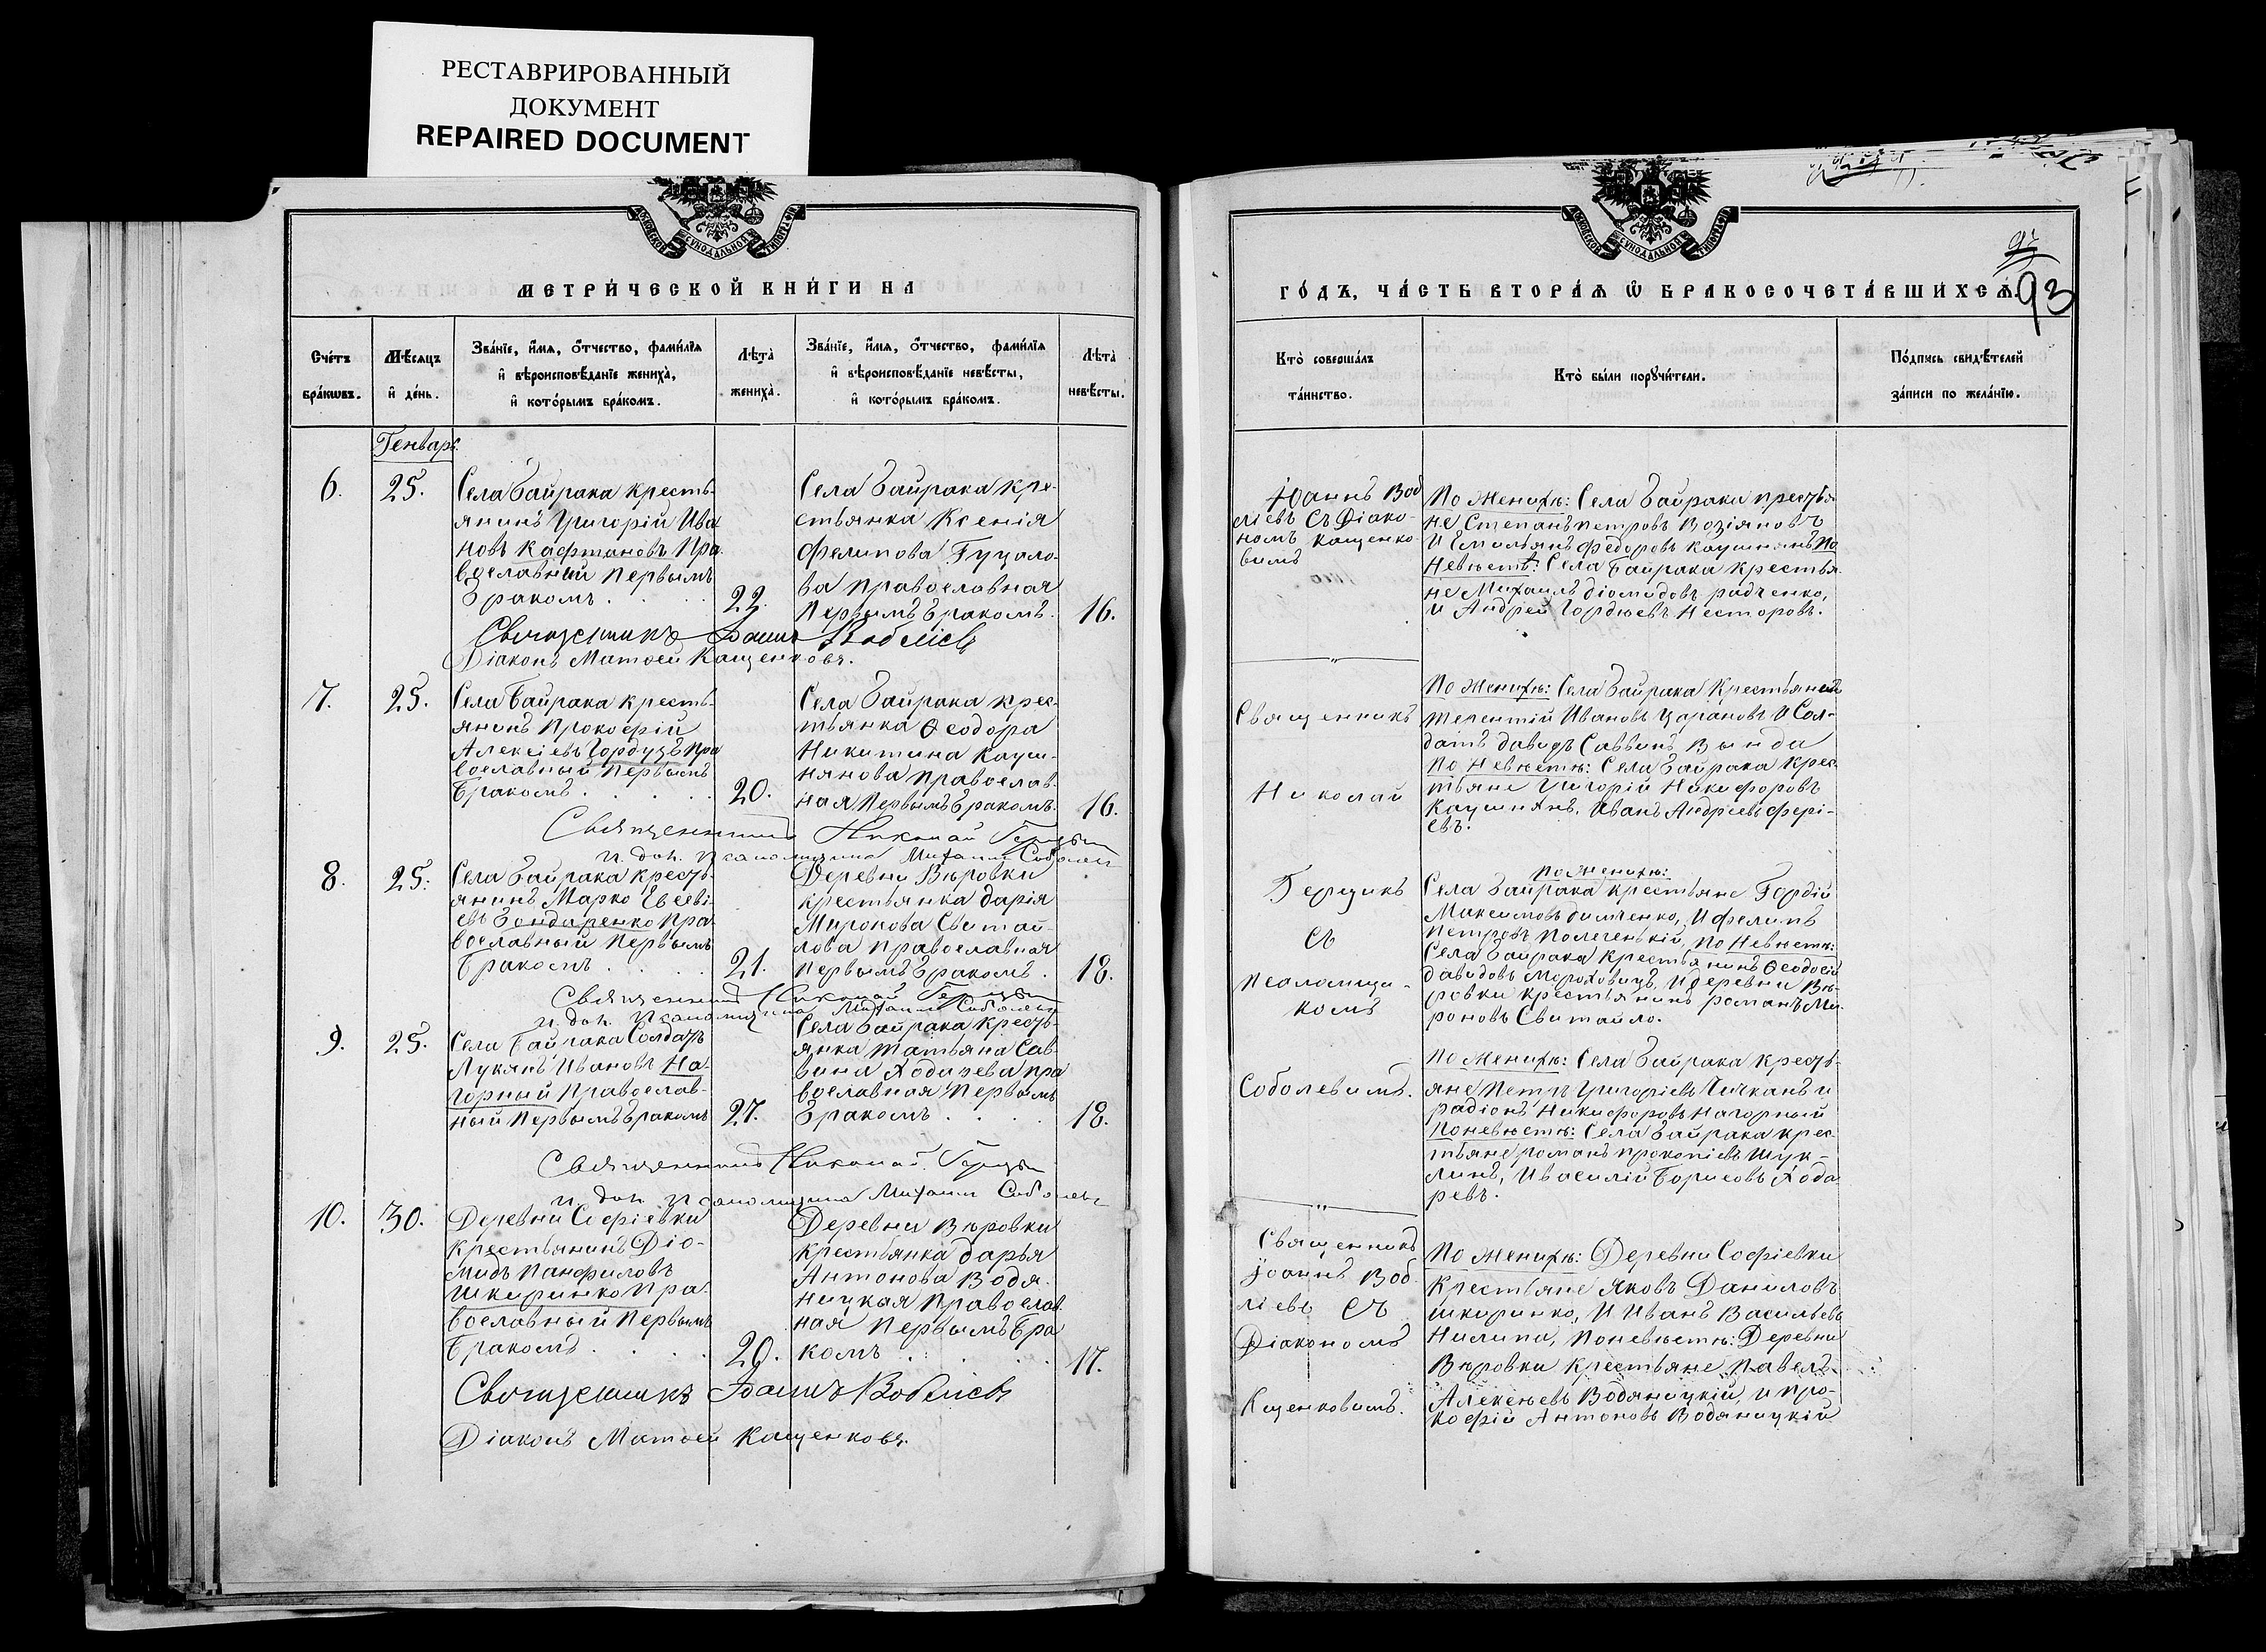 РЕСТАВРИРОВАННЫЙ
ДОКУМЕНТ
REPAIRED DOCUMENT
МОСКОВСКОЙ СУНОДАЛЬНОЙ ТИПОГРАФІИ
МЕТРИ́ЧЕСКОЙ КНИ́ГИ НА
Сче́тъ бра́кωвъ.
Мѣ́сяцъ и҆ де́нь.
Зва́нїе, и҆́мя, ѻ҆́тчество, фами́лїя
и҆ вѣроисповѣ́данїе жениха̀,
и҆ кото́рымъ бра́комъ.
Лѣ́та̀ жениха̀.
Зва́нїе, и҆́мя, ѻ҆́тчество, фами́лїя
и҆ вѣроисповѣ́данїе невѣ́сты,
и҆ кото́рымъ бра́комъ.
Лѣ́та̀ невѣ́сты.
Генварь.
6.
25.
Села Байрака кресть-
янинъ Григорій Ива
новъ Кафтановъ Пра-
вославный Первымъ
Бракомъ.
22.
Села Байрака Кре-
стьянка Ксенія
Филипова Гуцало-
ва Православная
Первымъ Бракомъ.
16.
Священникъ Іоаннъ Воблієвъ
Діаконъ Матѳей Кащенковъ.
7.
25.
Села Байрака кресть-
янинъ Прокофій
Алексіевъ Гордузъ Пра
вославный Первымъ
Бракомъ.
20.
Села Байрака крес-
тьянка Ѳеодора
Никитина Кауш-
нянова Православ-
ная Первымъ Бракомъ.
16.
Священникъ Николай Герцыкъ
и. дол. Псаломщика Михаилъ Соболевъ
8.
25.
Села Байрака кресть-
янинъ Марко Евсеві-
евъ Бондаренко Пра-
вославный Первымъ
Бракомъ.
21.
Деревни Вюровки
крестьянка Дарія
Миронова Свитай-
лова Православная
Первымъ Бракомъ.
18.
Священникъ Николай Герцыкъ
и. дол. Псаломщика Михаилъ Соболевъ
9.
25.
Села Байрака Солдатъ
Лукянъ Ивановъ На-
горный Православ-
ный Первымъ Бракомъ
27.
Села Байрака Кресть-
янка Татьяна Сав-
вина Ходарева Пра
вославная Первымъ
Бракомъ.
18.
Священникъ Николай Герцыкъ
и. дол. Псаломщика Михаилъ Соболевъ
10.
30.
Деревни Софіевки
Крестьянинъ Діо-
мидъ Панфиловъ
Шкиринко Пра-
вославный Первымъ
Бракомъ.
20.
Деревни Вюровки
крестьянка Дарья
Антонова Водя-
ницкая Православ-
ная Первымъ Бра
комъ
17.
Священникъ Іоаннъ Воблієвъ
Діаконъ Матѳей Кащенковъ.
МОСКОВСКОЙ СУНОДАЛЬНОЙ ТИПОГРАФІИ
93
ГО́ДЪ, ЧА́СТЬ ВТОРА́Я Ѡ҆ БРАКОСОЧЕТА́ВШИХСЯ.
Кто̀ соверша́лъ та́инство.
Кто̀ бы́ли порꙋчи́тели.
По́дпись свидѣ́телей за́писи по жела́нїю.
Іоаннъ Воб
ліевъ съ Діако-
номъ Кащенко-
вымъ
По Женихѣ: Села Байрака крестья
не Степанъ Петровъ Возіяновъ
и Емильянъ Федоровъ Каушнянъ По
Невѣстѣ: Села Байрака Крестья-
не Михаилъ Діомидовъ Радченко,
и Андрей Гордѣевъ Несторовъ.
Священникъ
Николай
Герцикъ
съ
Псаломщи-
комъ
Соболевымъ.
По Женихѣ: Села Байрака Крестьяне
Терентій Ивановъ Царановъ и Сол-
датъ Давидъ Саввинъ Вында
По Невѣстѣ: Села Байрака Крес-
тьяне Григорій Никифоровъ
Каушнянъ, Иванъ Андреевъ Фері-
евъ.
По Женихѣ:
Села Байрака крестьяне Гордій
Максимовъ Димченко, и Филипъ
Петровъ Полеченькій, По Невѣстѣ:
Села Байрака Крестьянинъ Ѳеодосій
Давидовъ Мороховецъ, и Деревни Вю-
ровки крестьянинъ Романъ Ми-
роновъ Свитайло.
По Женихѣ: Села Байрака Кресть-
яне Петръ Григоріевъ Чичканъ и
Радіонъ Никифоровъ Нагорный
По невѣстѣ: Села Байрака крес-
тьяне Романъ Прокопіевъ Шук-
линъ, и Василій Борисовъ Хода
ревъ.
Священникъ
Іоаннъ Воб-
ліевъ съ
Діакономъ
Кщенковымъ.
По Женихѣ: Деревни Софіевки
Крестьяне Яковъ Даниловъ
Шкиринко, и Иванъ Васильевъ
Нилипа, По невѣстѣ: Деревни
Вюровки Крестьяне Павелъ
Алексѣевъ Водяницкій, и Про-
кофій Антоновъ Водяницкій